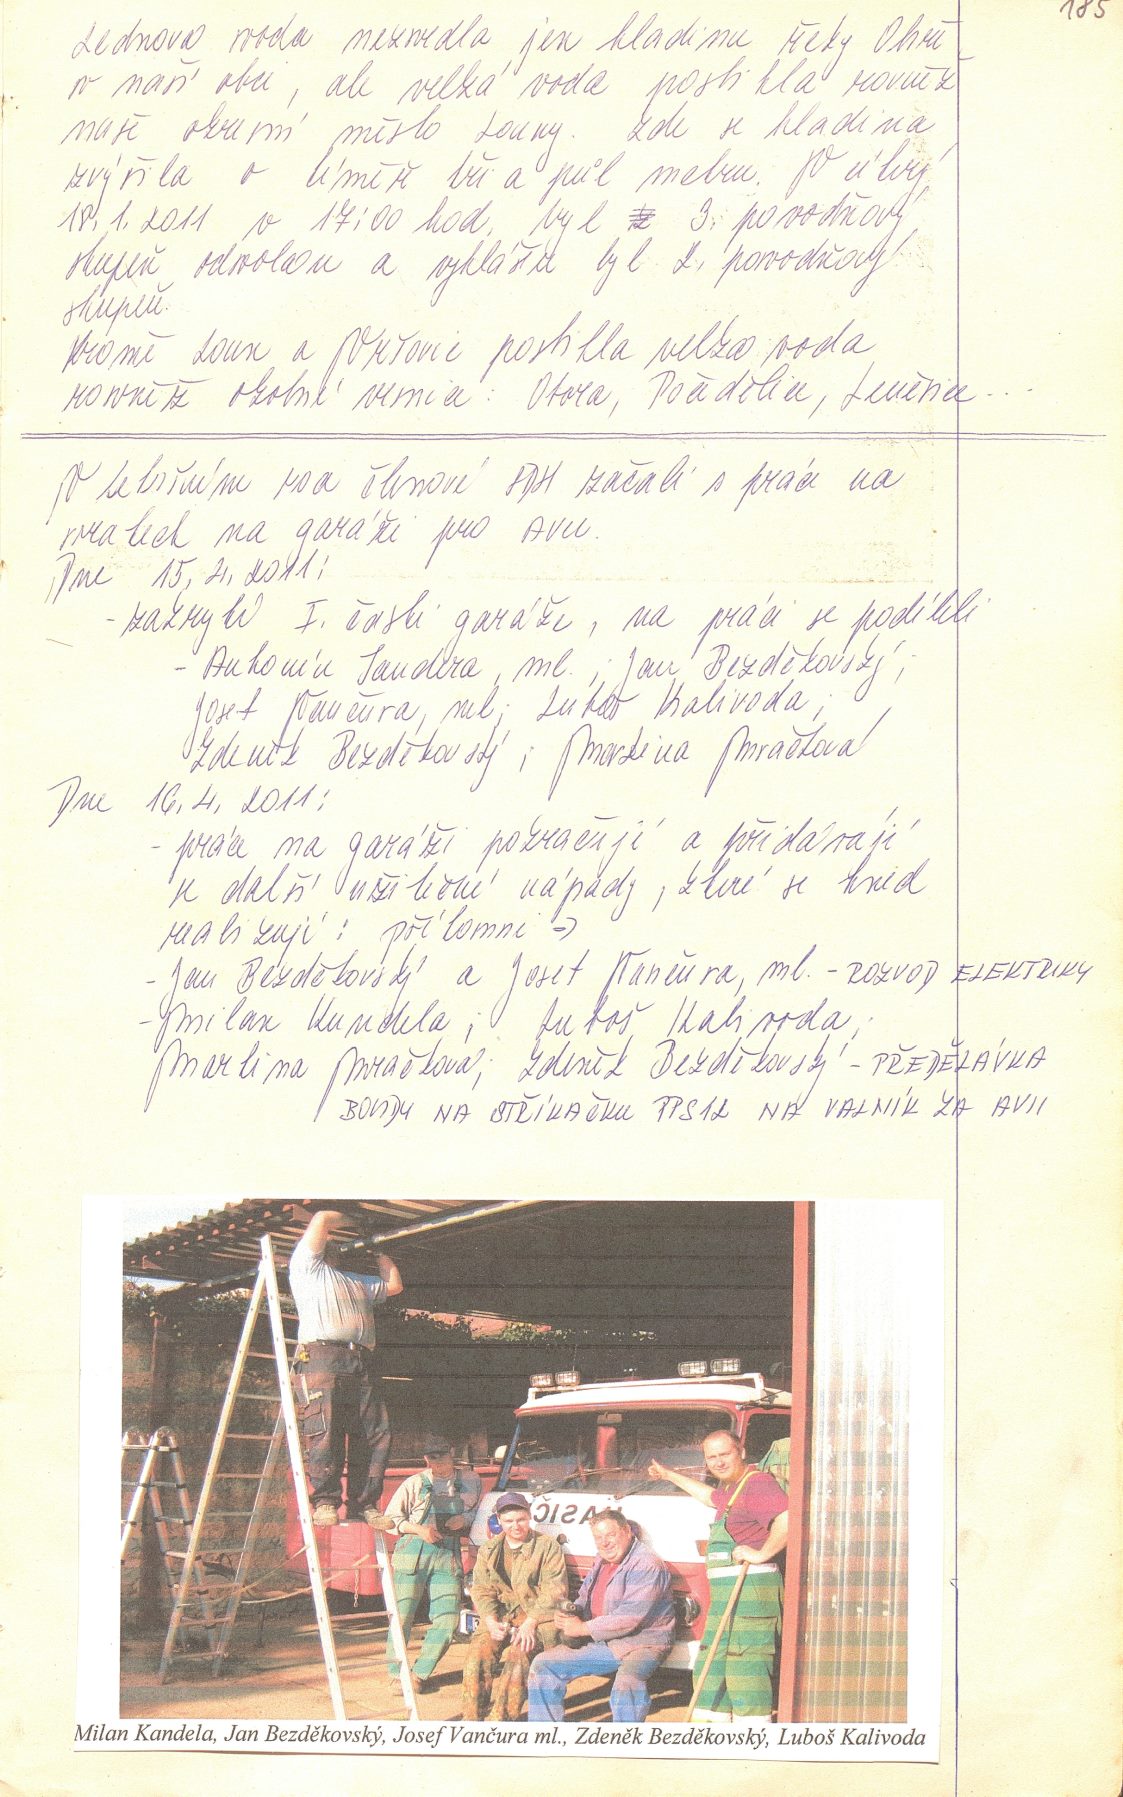 185
Lednová voda nezvedla jen hladinu řeky Ohře
v naší obci, ale velká voda postihla rovněž
naše okresní město Louny. Zde se hladina
zvýšila o téměř tři a půl metru. V úterý
18.1.2011 v 17:00 hod. byl 3. povodňový
stupeň odvolán a vyhlášen byl 2. povodňový
stupeň.
Kromě Loun a Vršovic postihla velká voda
rovněž okolní vesnice: Obora, Počedělice, Lenešice...
V letošním roce členové SDH začali s práce na
vratech na garáži pro AVII.
Dne 15.4.2011:
- zakrytí I. části garáže, na práci se podíleli
- Antonín Sandera, ml.; Jan Bezděkovský;
Josef Vančura, ml; Luboš Kalivoda;
Zdeněk Bezděkovský; Martina Mračková
Dne 16.4.2011:
- práce na garáži pokračují a přidávají
se další užitečné nápady, které se hned
realizují: přítomni =>
- Jan Bezděkovský a Josef Vančura, ml. - ROZVOD ELEKTRIKY
- Milan Kandela; Luboš Kalivoda;
Martina Mračková; Zdeněk Bezděkovský - PŘEDĚLÁVKA
BOUDY NA STŘÍKAČKU PPS12 NA VALNÍK ZA AVII
HASIČI
Milan Kandela, Jan Bezděkovský, Josef Vančura ml., Zdeněk Bezděkovský, Luboš Kalivoda